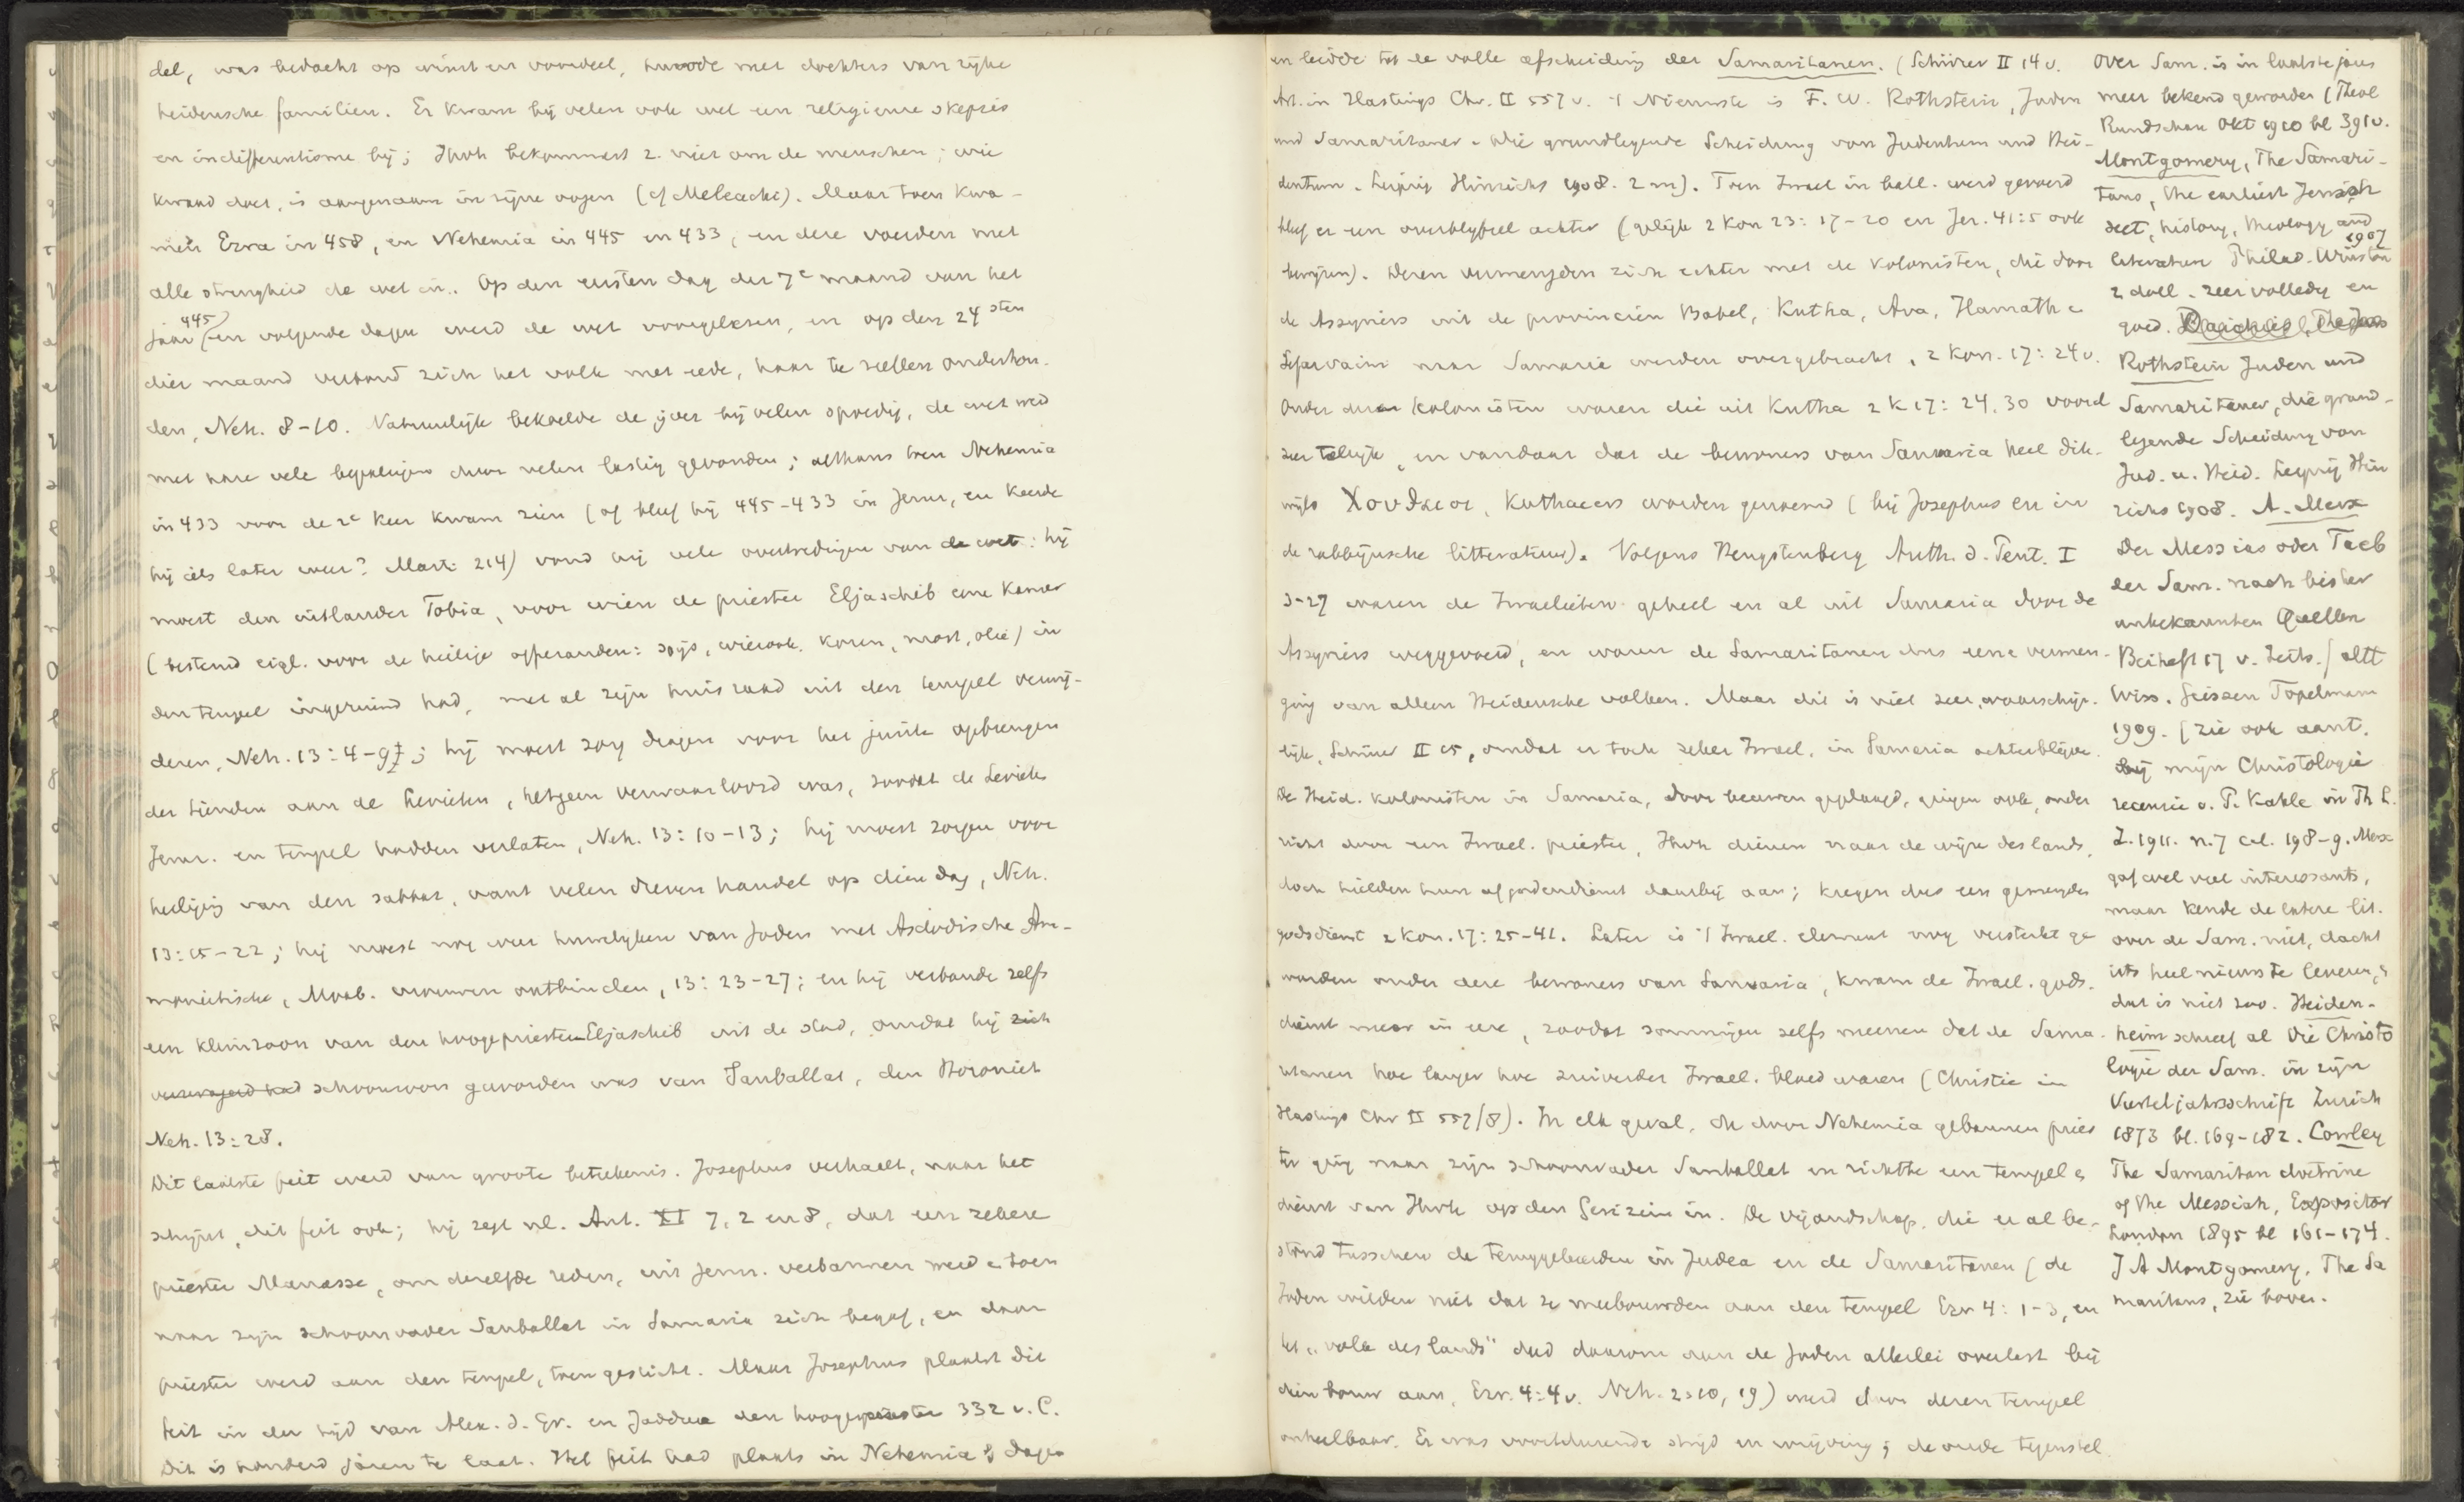 del, was bedacht op winst en voordeel, huwde met dochters van rijke
heidensche familien. Er kwam bij velen ook wel een religieuse skepsis
en indifferentisme bij; Jhvh bekommert z. niet om de menschen; wie
kwaad doet, is aangenaam in zijne oogen (cf Maleachi). Maar toen kwa-
men Ezra in 458, en Nehemia in 445 en 433, en deze voerden met
alle strengheid de wet in. Op den eersten dag der 7e maand van het
jaar 445 en volgende dagen werd de wet voorgelezen, en op den 24sten
dier maand verbond zich het volk met eede, haar te zullen onderhou-
den, Neh. 8-10. Natuurlijk bekoelde de ijver bij velen spoedig, de wet werd
met hare vele bepalingen door velen lastig gevonden; althans toen Nehemia
in 433 voor de 2e keer kwam zien (of bleef hij 445-433 in Jeruz, en keerde
hij iets later weer? Marti 214) vond hij vele overtredingen van de wet: hij
moest den uitlander Tobia, voor wien de priester Eljaschib eene kamer
(bestemd eigl. voor de heilige offeranden: spijs, wierook, koren, most, olie) in
den tempel ingeruimd had, met al zijn huisraad uit den tempel verwij-
deren, Neh. 13:4-9; hij moest zorg dragen voor het juiste opbrengen
der tienden aan de Levieten, hetgeen verwaarloosd was, zoodat de Levieten
Jeruz. en tempel hadden verlaten, Neh. 13:10-13; hij moest zorgen voor
heiliging van den sabbat, want velen dreven handel op dien dag, Neh.
13:15-22; hij moest nog weer huwelijken van Joden met Asdodische Am-
monietische, Moab. vrouwen ontbinden, 13:23-27; en hij verbande zelfs
een kleinzoon van den hoogepriester Eljaschib uit de stad, omdat hij zich
verzwagerd had schoonzoon geworden was van Sanballat, den Horoniet
Neh. 13:28.
Dit laatste feit werd van groote beteekenis. Josephus verhaalt, naar het
schijnt, dit feit ook; hij zegt nl. Ant. XI 7, 2 en 8, dat een zekere
priester Manasse, om dezelfde reden, uit Jeruz. verbannen werd en toen
naar zijn schoonvader Sanballat in Samaria zich begaf, en daar
priester werd aan den tempel, toen gesticht. Maar Josephus plaatst dit
feit in den tijd van Alex. d. Gr. en Jaddua den hoogepriester 332 v. C.
Dit is honderd jaren te laat. Het feit had plaats in Nehemia's dagen
en leidde tot de volle afscheiding der Samaritanen. (Schürer II 14 v.
Art. in Hastings Chr. II 557 v. 't Nieuwste is F. W. Rothstein, Juden
und Samaritaner. Die grundlegende Scheidung von Judentum und Hei-
dentum. Leipzig Hinrichs 1908. 2 m). Toen Israel in ball. werd gevoerd
bleef er een overblijfsel achter (gelijk 2 Kon 23:17-20 en Jer. 41:5 ook
bewijzen). Dezen vermengden zich echter met de kolonisten, die door
de Assyriers uit de provincien Babel, Kutha, Ava, Hamath e
Sefarvaim naar Samaria werden overgebracht, 2 Kon. 17:24 v.
Onder dezen kolonisten waren die uit Kutha 2 K 17:24, 30 vooral
zeer talrijk, en vandaar dat de bewoners van Samaria heel dik-
wijls Χουθαιοι, Kuthaeers worden genoemd (bij Josephus en in
de rabbijnsche litteratuur). Volgens Hengstenberg Auth. d. Pent. I
3-27 waren de Israelieten geheel en al uit Samaria door de
Assyriers weggevoerd, en waren de Samaritanen dus eene vermen-
ging van alleen Heidensche volken. Maar dit is niet zeer waarschijn-
lijk, Schürer II 15, omdat er toch zeker Israel. in Samaria achterblijven.
De Heid. kolonisten in Samaria, door leeuwen geplaagd, gingen ook, onder
richt door een Israel. priester, Jhvh dienen naar de wijze des lands,
doch hielden hun afgodendienst daarbij aan; kregen dus een gemengden
godsdienst 2 Kon. 17:25-41. Later is 't Israel. element nog versterkt ge
worden onder deze bewoners van Samaria, kwam de Israel. gods-
dienst meer in eere, zoodat sommigen zelfs meenen dat de Sama-
ritanen hoe langer hoe zuiverder Israel. bloed waren (Christie in
Hastings Chr II 557/8). In elk geval, de door Nehemia gebannen pries
ter ging naar zijn schoonvader Sanballat en richtte een tempel e
dienst van Jhvh op den Gerizim in. De vijandschap, die er al be-
stond tusschen de teruggekeerden in Judea en de Samaritanen (de
Joden wilden niet dat ze meebouwden aan den tempel Ezr 4:1-3, en
het "volk des lands" deed daarom aan de Joden allerlei overlast bij
dien bouw aan, Ezr. 4:4 v. Neh. 2:10, 19) werd door dezen tempel
onheelbaar. Er was voortdurende strijd en wrijving; de oude tegenstel
Over Sam. is in laatste jaren
meer bekend geworden (Theol
Rundschau Okt 1910 bl 391 v.
Montgomery, The Samari-
tans, the earliest Jewish
sect, history, theology and
literature Philad. Winston 1907
2 doll. zeer volledig en
goed.
Rothstein Juden und
Samaritaner, die grund-
legende Scheidung von
Jud. u. Heid. Leipzig Hin
richs 1908. A. Merx
Der Messias oder Taeb
der Sam. nach bisher
unbekannten Quellen
Beiheft 17 v. Zeits. f altt
Wiss. Giessen Topelmann
1909. (zie ook aant.
bij mijn Christologie
recensie v. P. Kahle in Th L.
Z. 1911. n. 7 col. 198-9. Merx
gaf wel veel interessants,
maar kende de latere lit.
over de Sam. niet, dacht
iets heel nieuws te leveren,
dat is niet zoo. Heiden-
heim schreef al Die Christo
logie der Sam. in zijn
Vierteljahrsschrift Zurich
1873 bl. 169-182. Cowley
The Samaritan doctrine
of the Messiah, Expositor
London 1895 bl 161-174.
J A Montgomery, The Sa
maritans, zie boven.